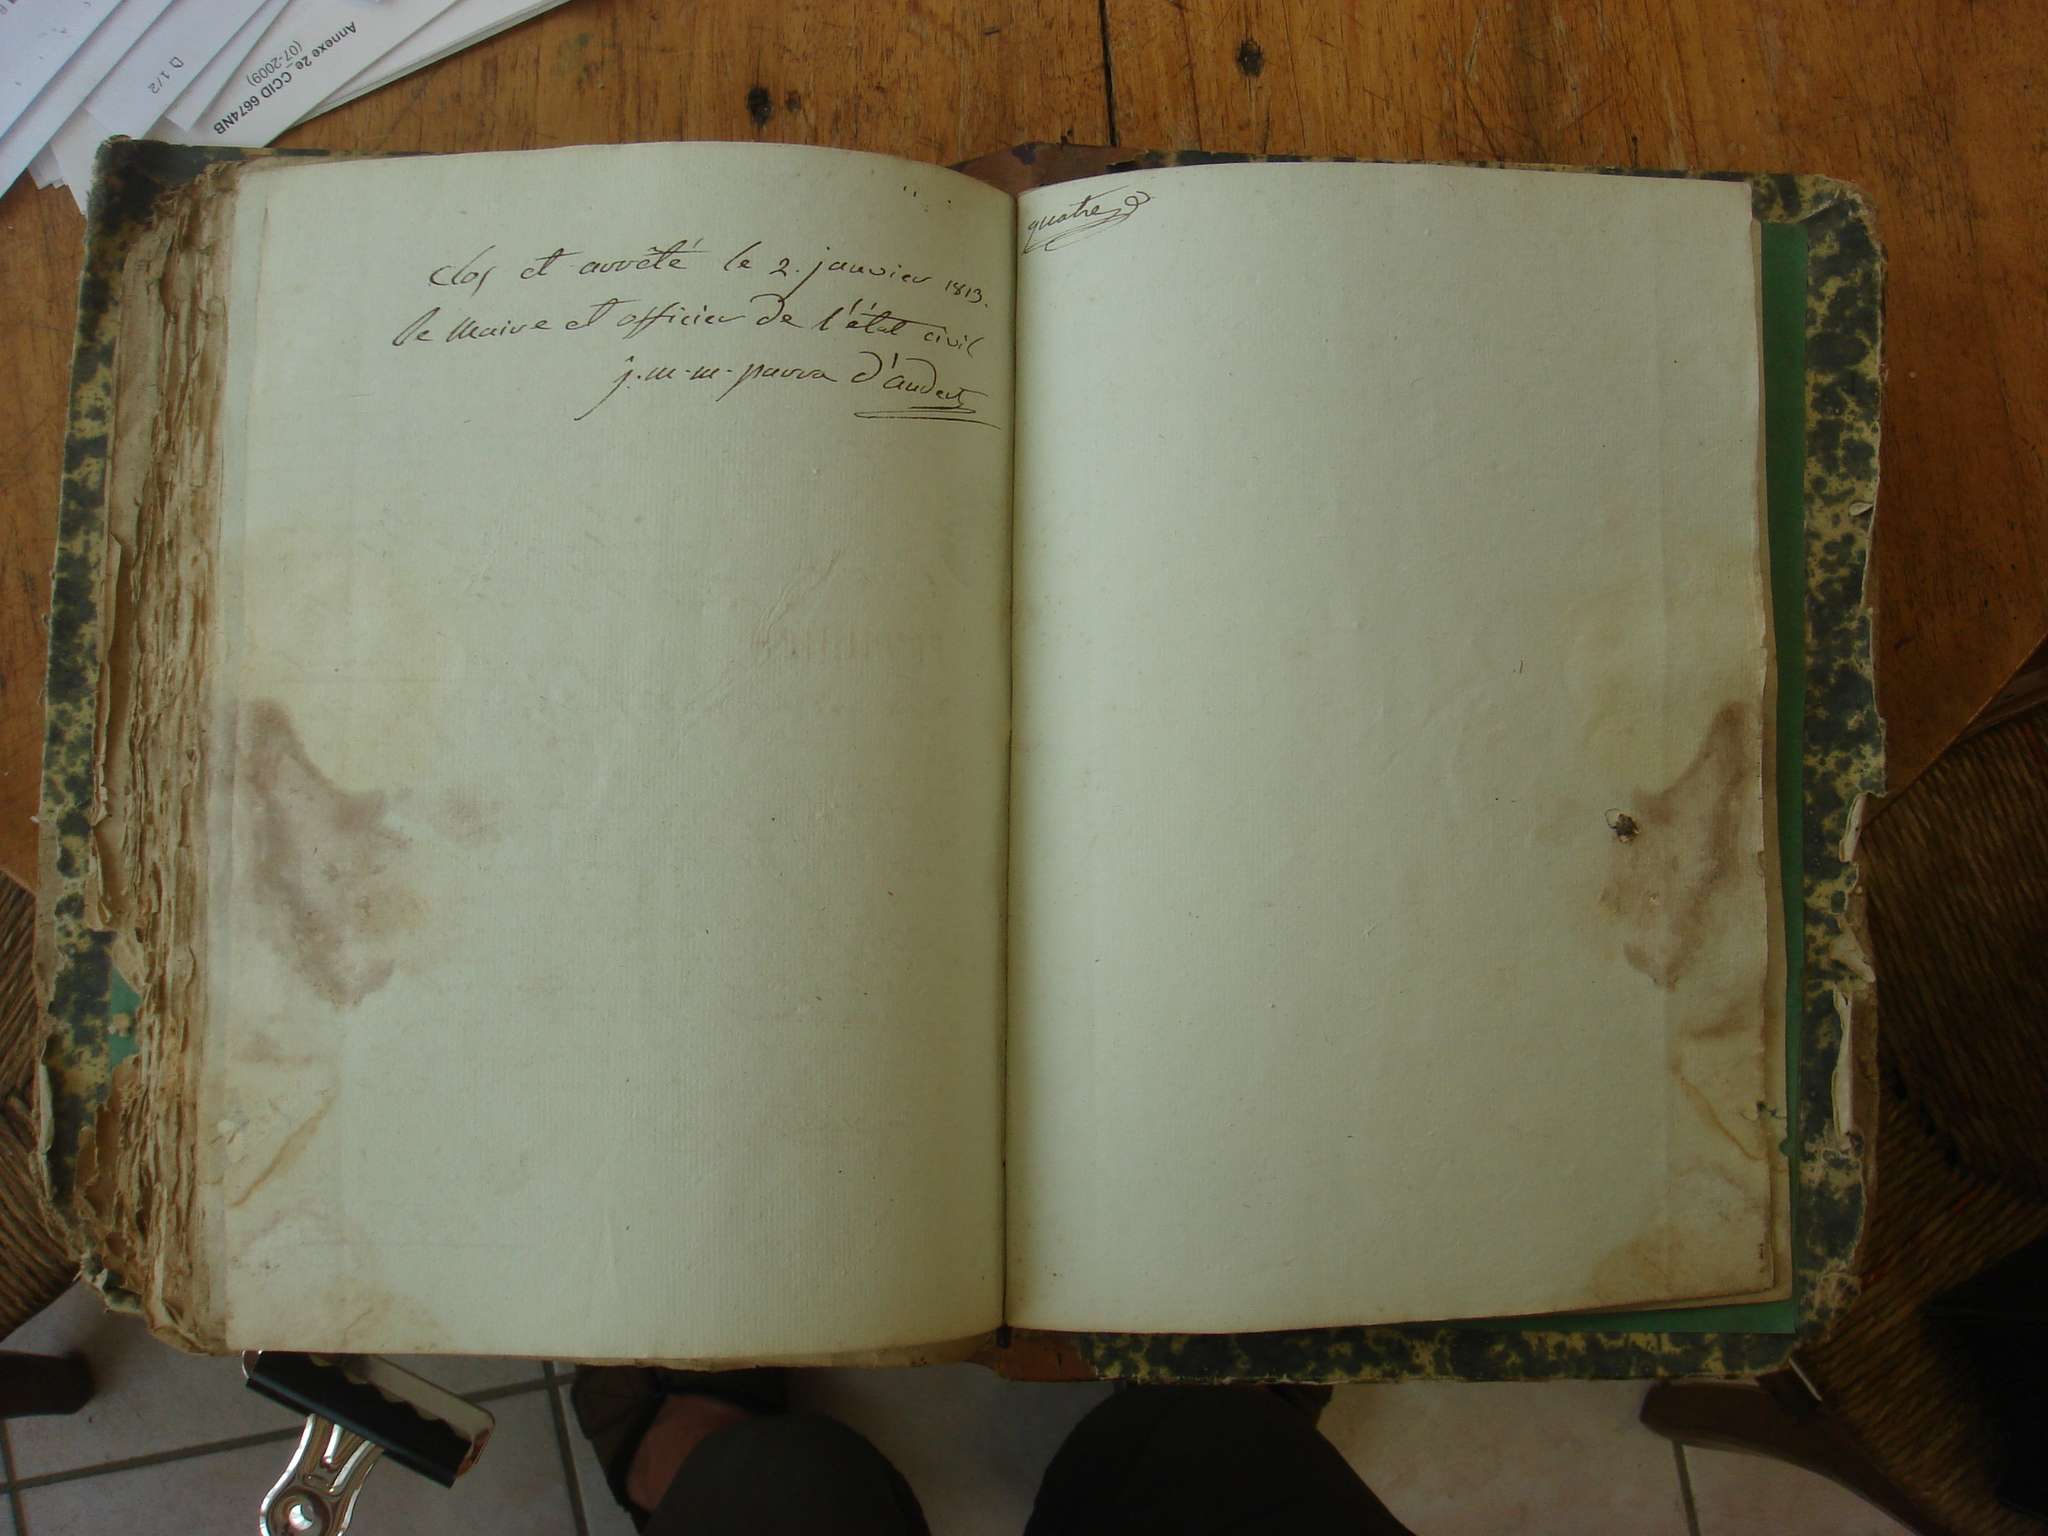 Annexe 2e_CCID 6674NB
(07-2009)
D 1/2
Clos et arrêté le 2. janvier 1813.
le Maire et officier de l'état civil
j. m. m. parra d'andert
quatre